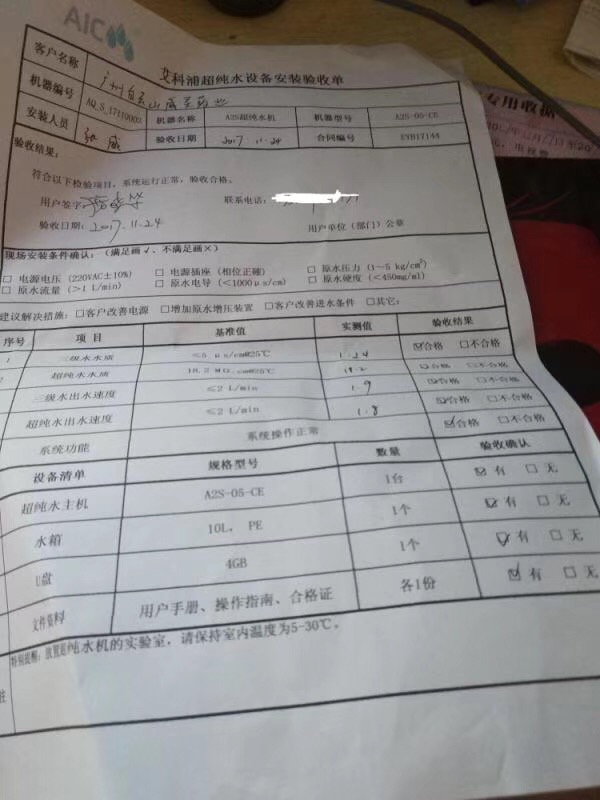 AIC
艾科浦超纯水设备安装验收单
客户名称 广州白云山威灵药业
机器编号 AQ_S_17110003 机器名称 A2S超纯水机 机器型号 A2S-05-CE
安装人员 张威 验收日期 2017.11.24 合同编号 EYB17144
验收结果：
符合以下检验项目，系统运行正常，验收合格。
用户签字： 联系电话：
验收日期：2017.11.24 用户单位（部门）公章
现场安装条件确认：（满足画√、不满足画×）
□ 电源电压（220VAC±10%） □ 电源插座（相位正确） □ 原水压力（1~5 kg/cm²）
□ 原水流量（>1 L/min） □ 原水电导（<1000μs/cm） □ 原水硬度（<450mg/ml）
建议解决措施：□客户改善电源 □增加原水增压装置 □客户改善进水条件 □其它：
序号 项目 基准值 实测值 验收结果
1 三级水水质 ≤5 μs/cm@25℃ 1.24 ☑合格 □不合格
2 超纯水水质 18.2 MΩ.cm@25℃ 18.2 ☑合格 □不合格
三级水出水速度 ≤2 L/min 1.9 ☑合格 □不合格
超纯水出水速度 ≤2 L/min 1.8 ☑合格 □不合格
系统功能 系统操作正常 ☑合格 □不合格
设备清单 规格型号 数量 验收确认
超纯水主机 A2S-05-CE 1台 ☑有 □无
水箱 10L， PE 1个 ☑有 □无
U盘 4GB 1个 ☑有 □无
文件资料 用户手册、操作指南、合格证 各1份 ☑有 □无
特别提醒：放置超纯水机的实验室，请保持室内温度为5-30℃。
注
专用收据